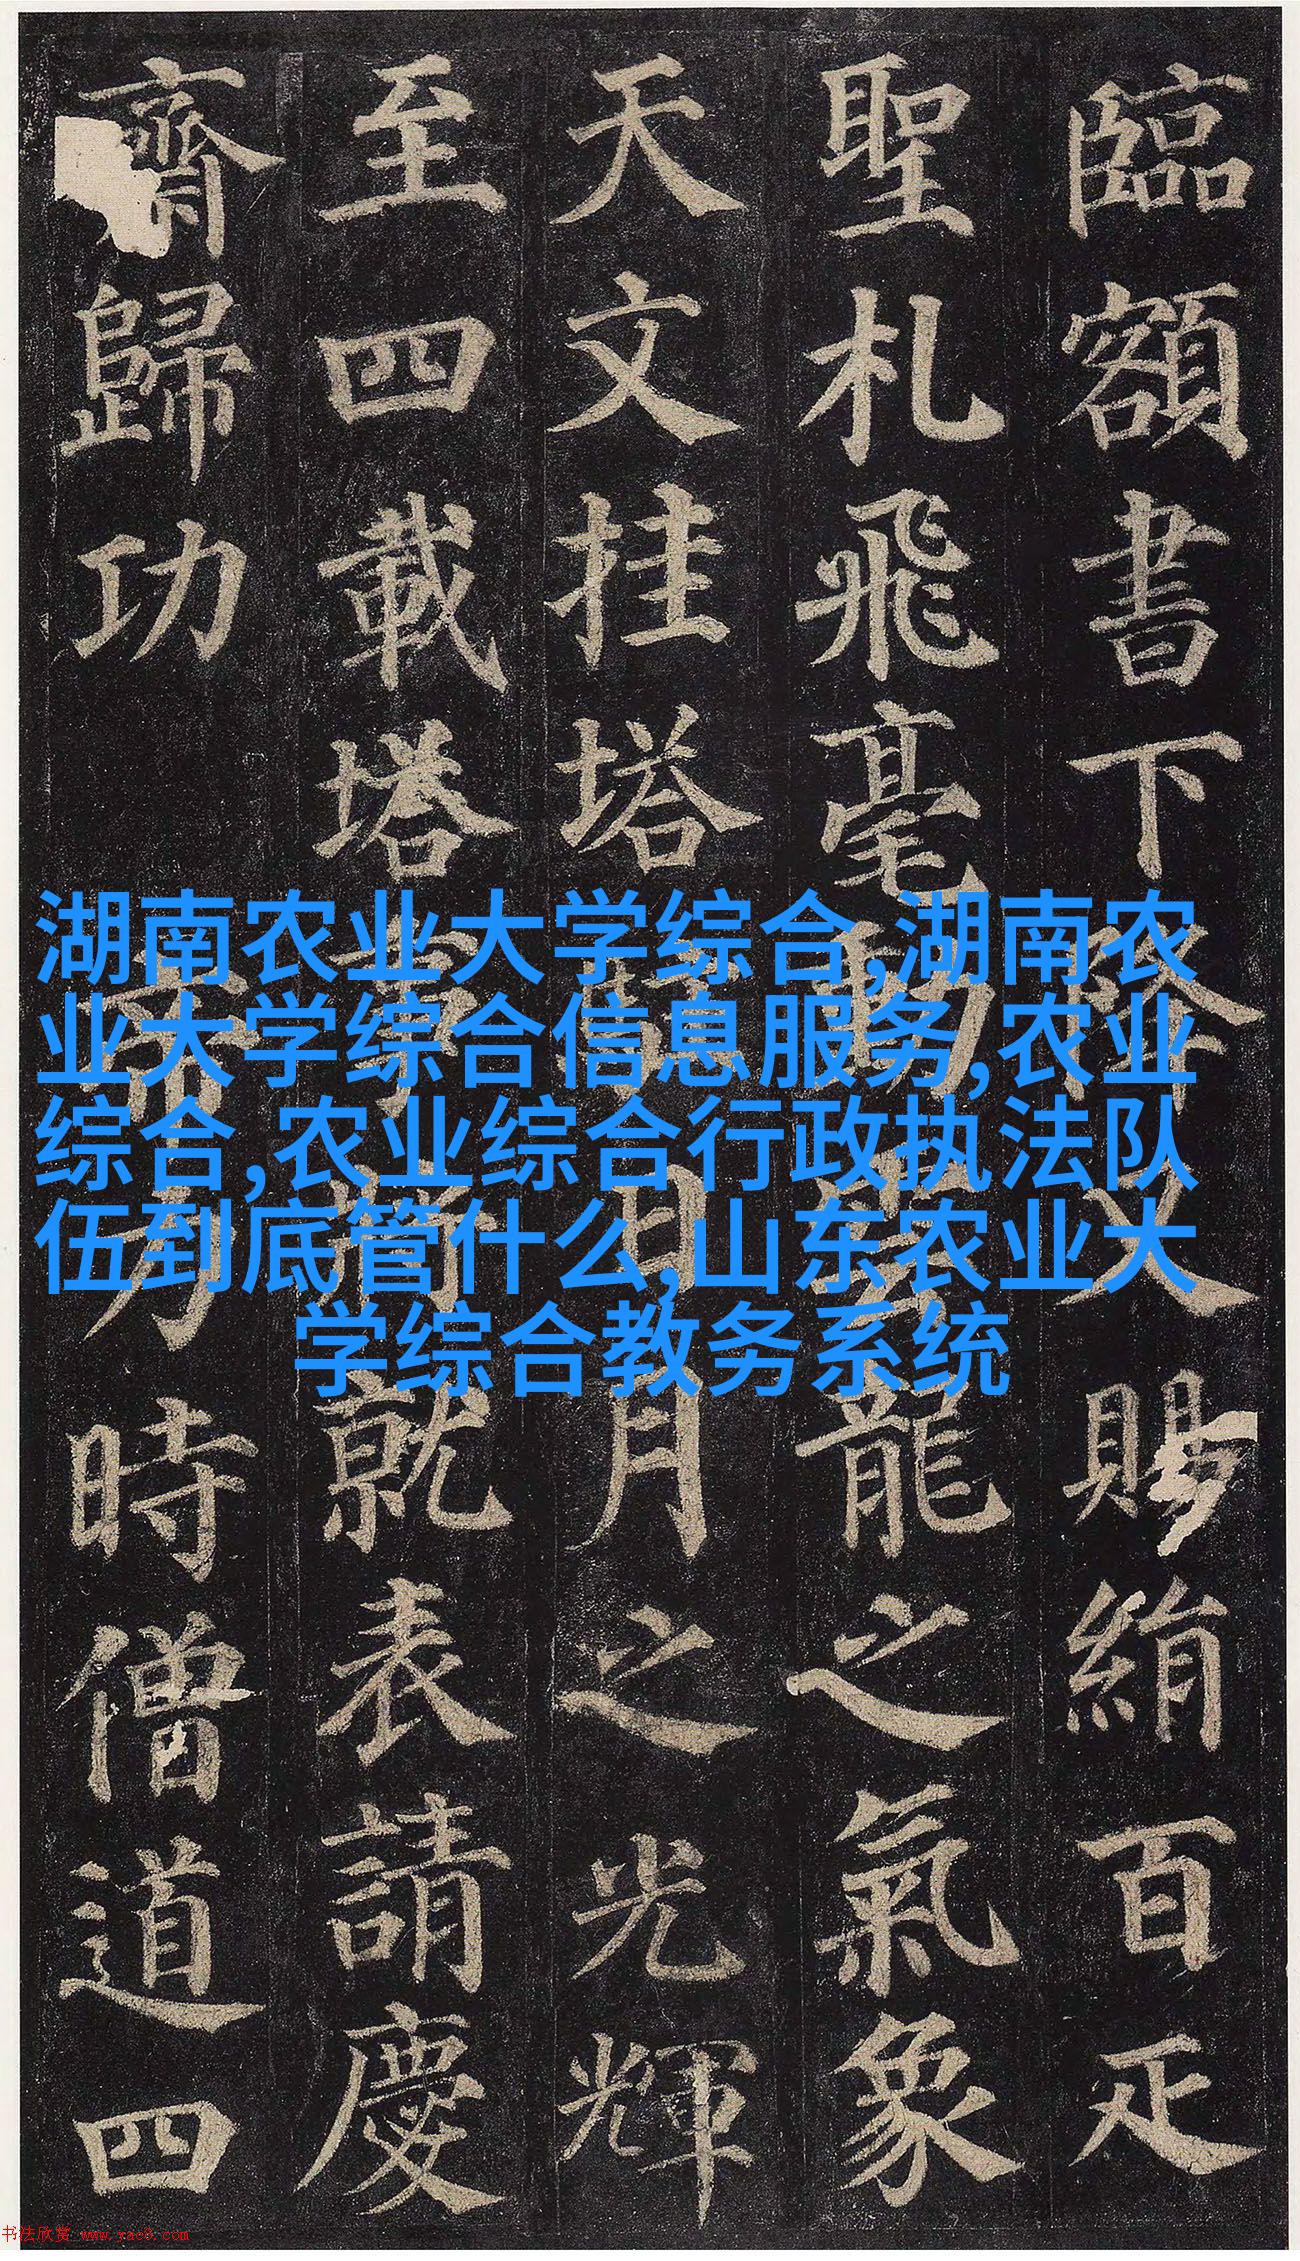 臨額書下降又賜絹百疋
聖札飛毫動雲龍之氣象
天文挂塔駐日月之光輝
至四載塔事將就表請慶
齋歸功帝力時僧道四
湖南农业大学综合,湖南农
业大学综合信息服务,农业
综合,农业综合行政执法队
伍到底管什么,山东农业大
学综合教务系统
书法欣赏 www.yac8.com